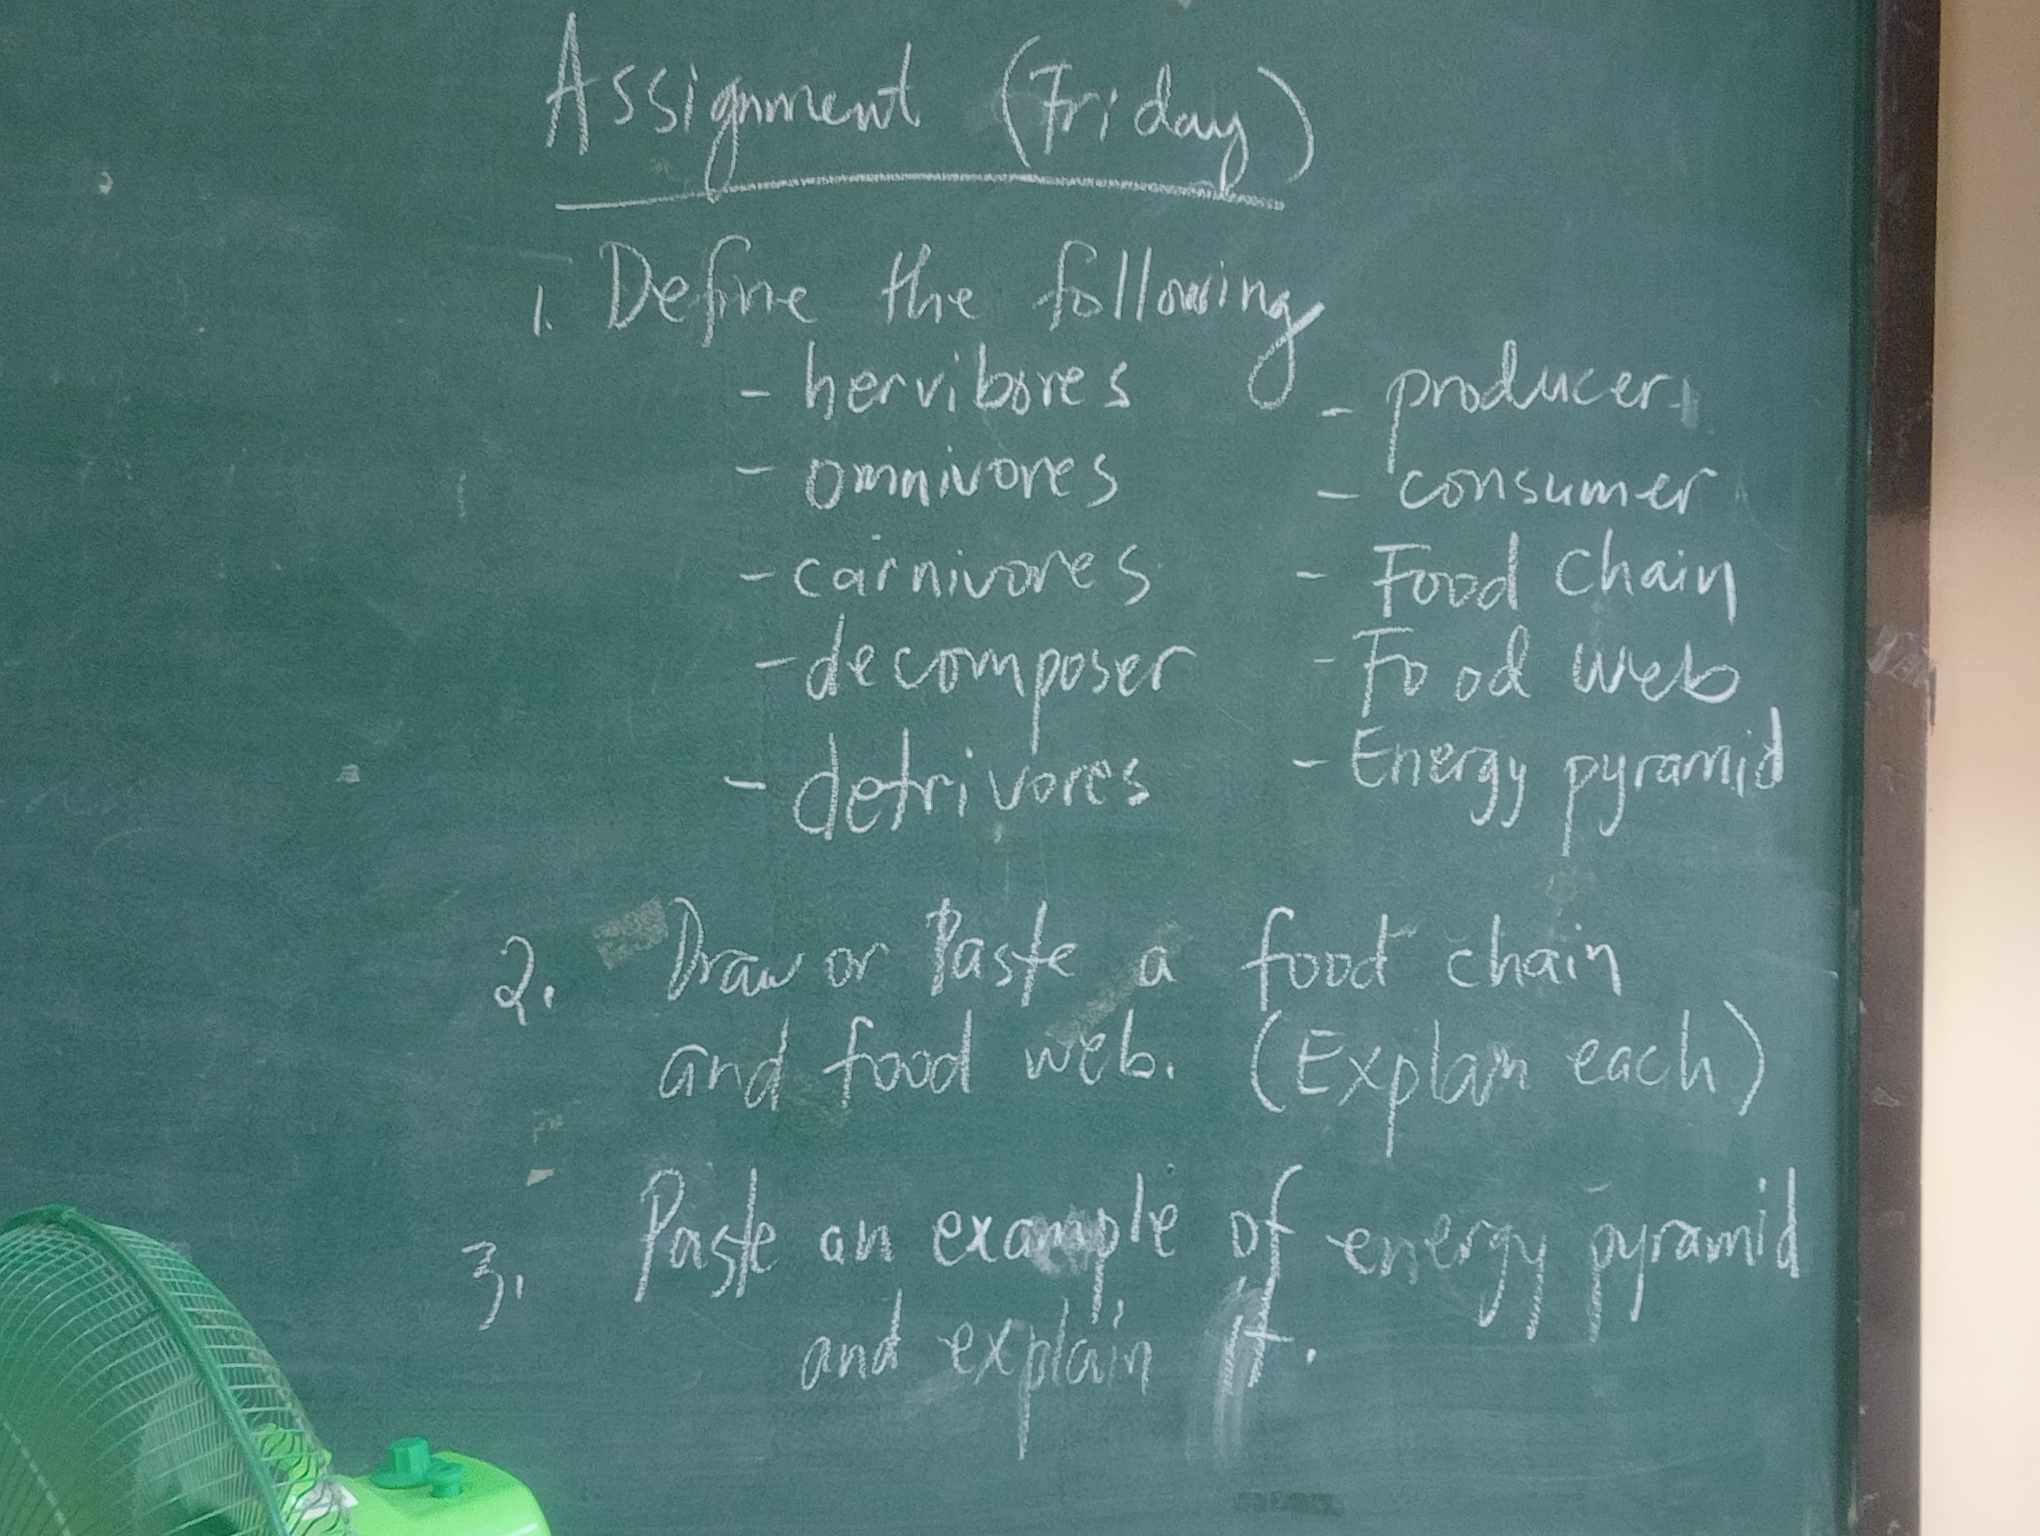 Assignment (Friday)
1. Define the following
- hervibores
- omnivores
- carnivores
- decomposer
- detrivores
- producer
- consumer
- Food Chain
- Food web
- Energy pyramid
2. Draw or Paste a food chain
and food web. (Explain each)
3. Paste an example of energy pyramid
and explain it.